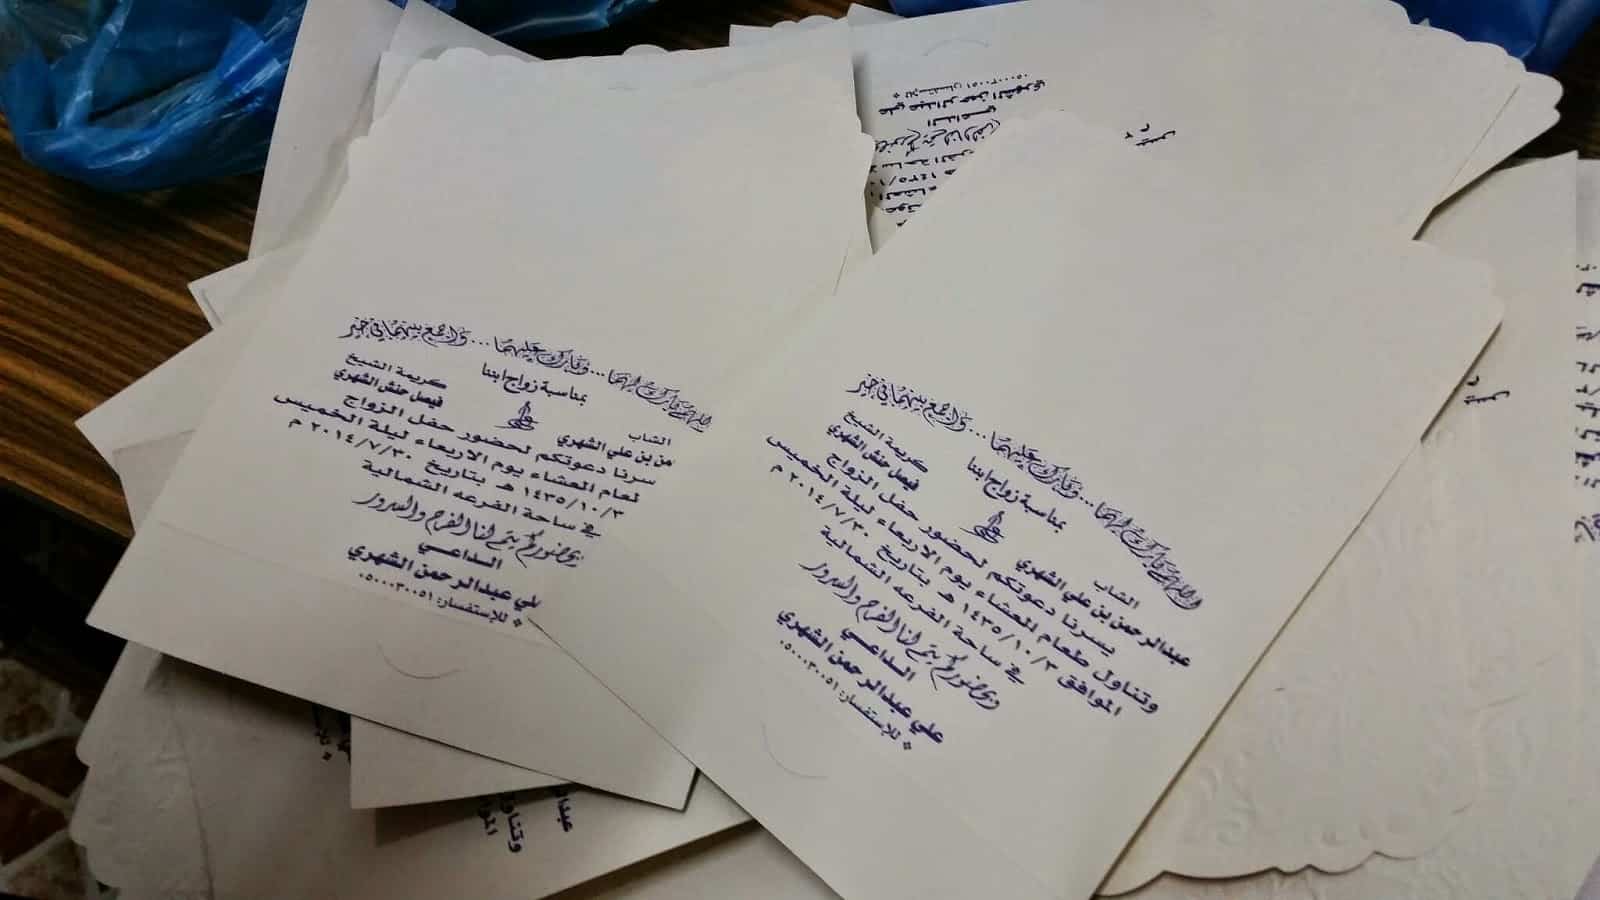 اللهم بارك لهما... وبارك عليهما... واجمع بينهما في خير
بمناسبة زواج ابننا
الشاب
كريمة الشيخ
من بن علي الشهري
على
فيصل حنش الشهري
سرنا دعوتكم لحضور حفل الزواج
لعام العشاء يوم الاربعاء ليلة الخميس
١٤٣٥/١٠/٣ هـ بتاريخ ٢٠١٤/٧/٣٠ م
في ساحة الفرعه الشمالية
بحضوركم يتم لنا الفرح والسرور
الداعي
لي عبدالرحمن الشهري
* للإستفسار: ٠٥٠٠٠٣٠٠٥١
اللهم بارك لهما... وبارك عليهما... واجمع بينهما في خير
بمناسبة زواج ابننا
الشاب
كريمة الشيخ
عبدالرحمن بن علي الشهري
على
فيصل حنش الشهري
يسرنا دعوتكم لحضور حفل الزواج
وتناول طعام العشاء يوم الاربعاء ليلة الخميس
الموافق ١٤٣٥/١٠/٣ هـ بتاريخ ٢٠١٤/٧/٣٠ م
في ساحة الفرعه الشمالية
وبحضوركم يتم لنا الفرح والسرور
الداعي
علي عبدالرحمن الشهري
* للإستفسار: ٠٥٠٠٠٣٠٠٥١
الداعي
علي عبدالرحمن الشهري
* للإستفسار: ٠٥٠٠٠٣٠٠٥١